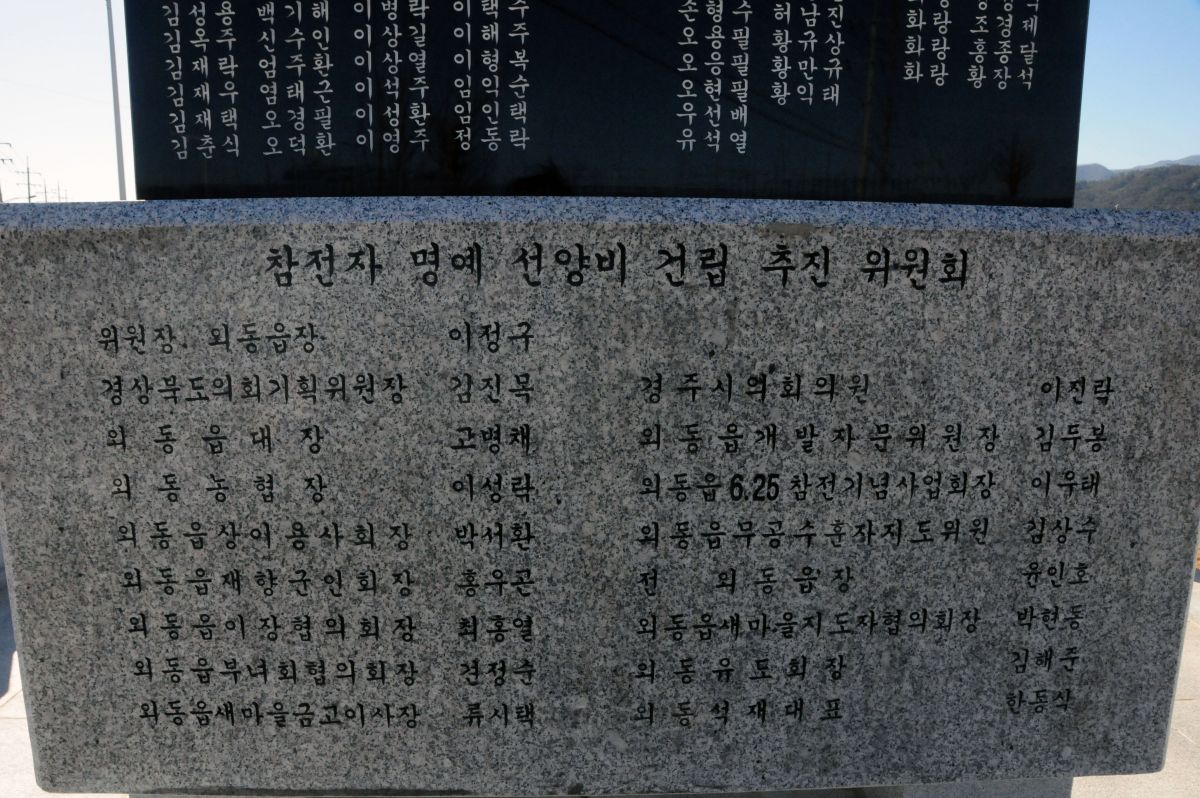 김성용 백기해 이병락 이택주 손형수 허남진 화랑 조경제
김옥주 신수인 이상길 이해주 오용필 황규상 화랑 홍종달
김재락 엄주환 이상열 이형복 오응필 황만규 화랑 황장석
김재우 염태근 이석주 임익순 오현필 황익태
김재택 오경필 이성환 임인택 우선배
김춘식 오덕환 이영주 정동락 유석열
참전자 명예 선양비 건립 추진 위원회
위원장. 외동읍장 이정구
경상북도의회기획위원장 김진목 경주시의회의원 이진락
외동읍대장 고병채 외동읍개발자문위원장 김두봉
외동농협장 이성락 외동읍6.25참전기념사업회장 이우태
외동읍상이용사회장 박서환 외동읍무공수훈자지도위원 김상수
외동읍재향군인회장 홍우곤 전 외동읍장 윤인호
외동읍이장협의회장 최홍열 외동읍새마을지도자협의회장 박현동
외동읍부녀회협의회장 전정순 외동유도회장 김해준
외동읍새마을금고이사장 류시택 외동석재대표 한동삭